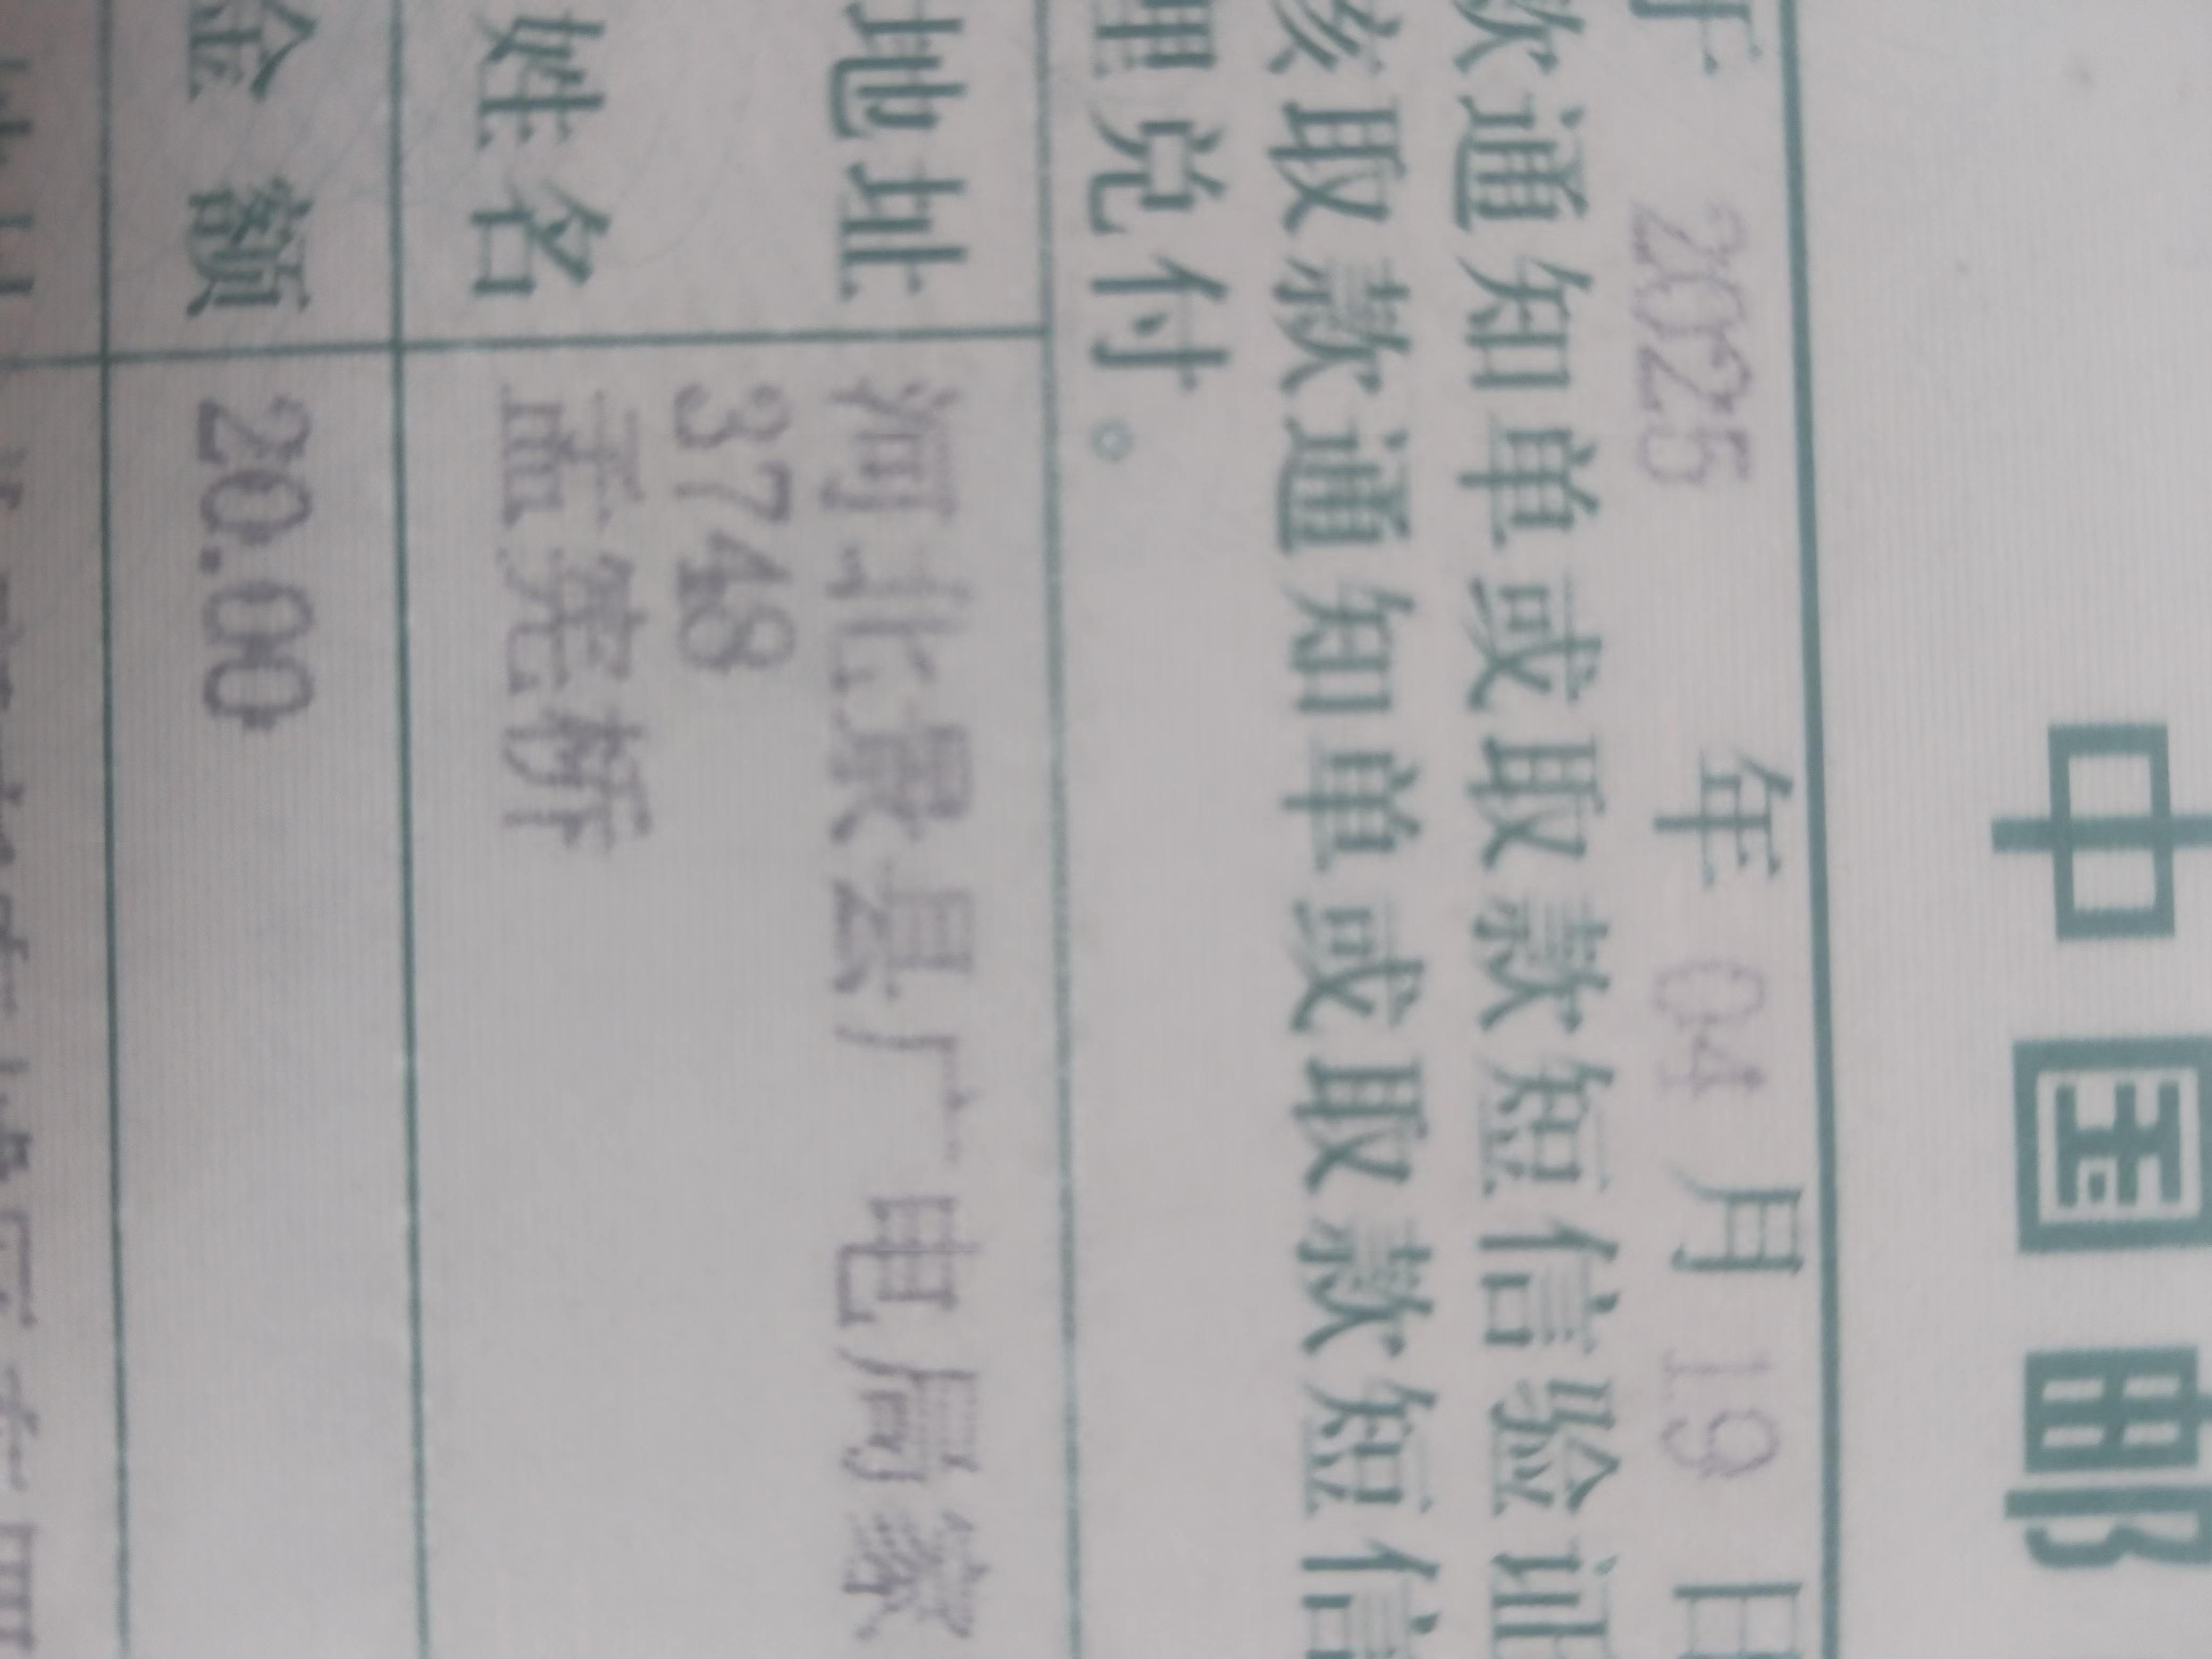 中国邮
于 2025 年 04 月 19 日
款通知单或取款短信验证
该取款通知单或取款短信
理兑付。
地址 河北景县广电局家
3748
姓名 孟宪桥
金额 20.00